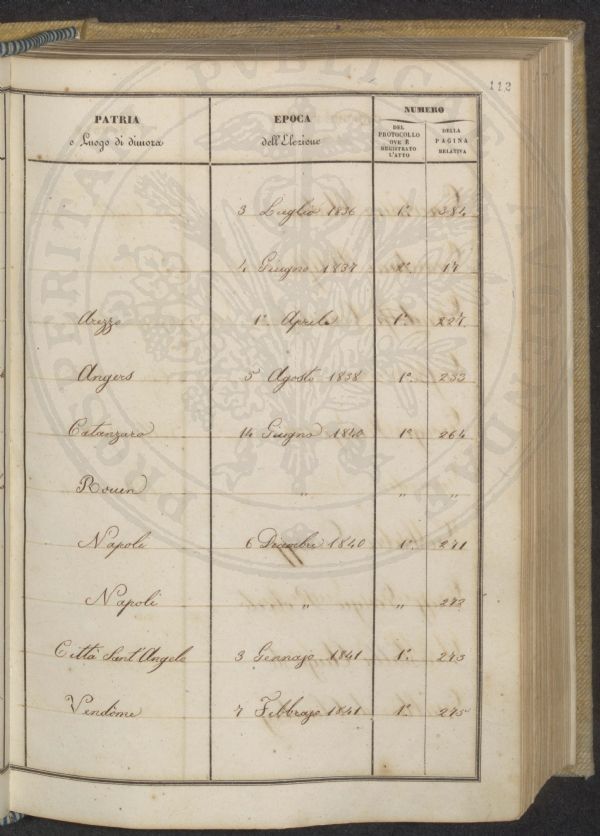 112
PATRIA
e Luogo di dimora
EPOCA
dell'Elezione
NUMERO
DEL
PROTOCOLLO
OVE È
REGISTRATO
L'ATTO
DELLA
PAGINA
RELATIVA
3 Luglio 1836 1° 384
4 Giugno 1837 17
Arezzo 1° Aprile 1° 227
Angers 5 Agosto 1838 1° 233
Catanzaro 14 Giugno 1840 1° 264
Rouen " " "
Napoli 6 Dicembre 1840 1° 271
Napoli " " 273
Città Sant'Angelo 3 Gennajo 1841 1° 273
Vendôme 7 Febbrajo 1841 1° 275